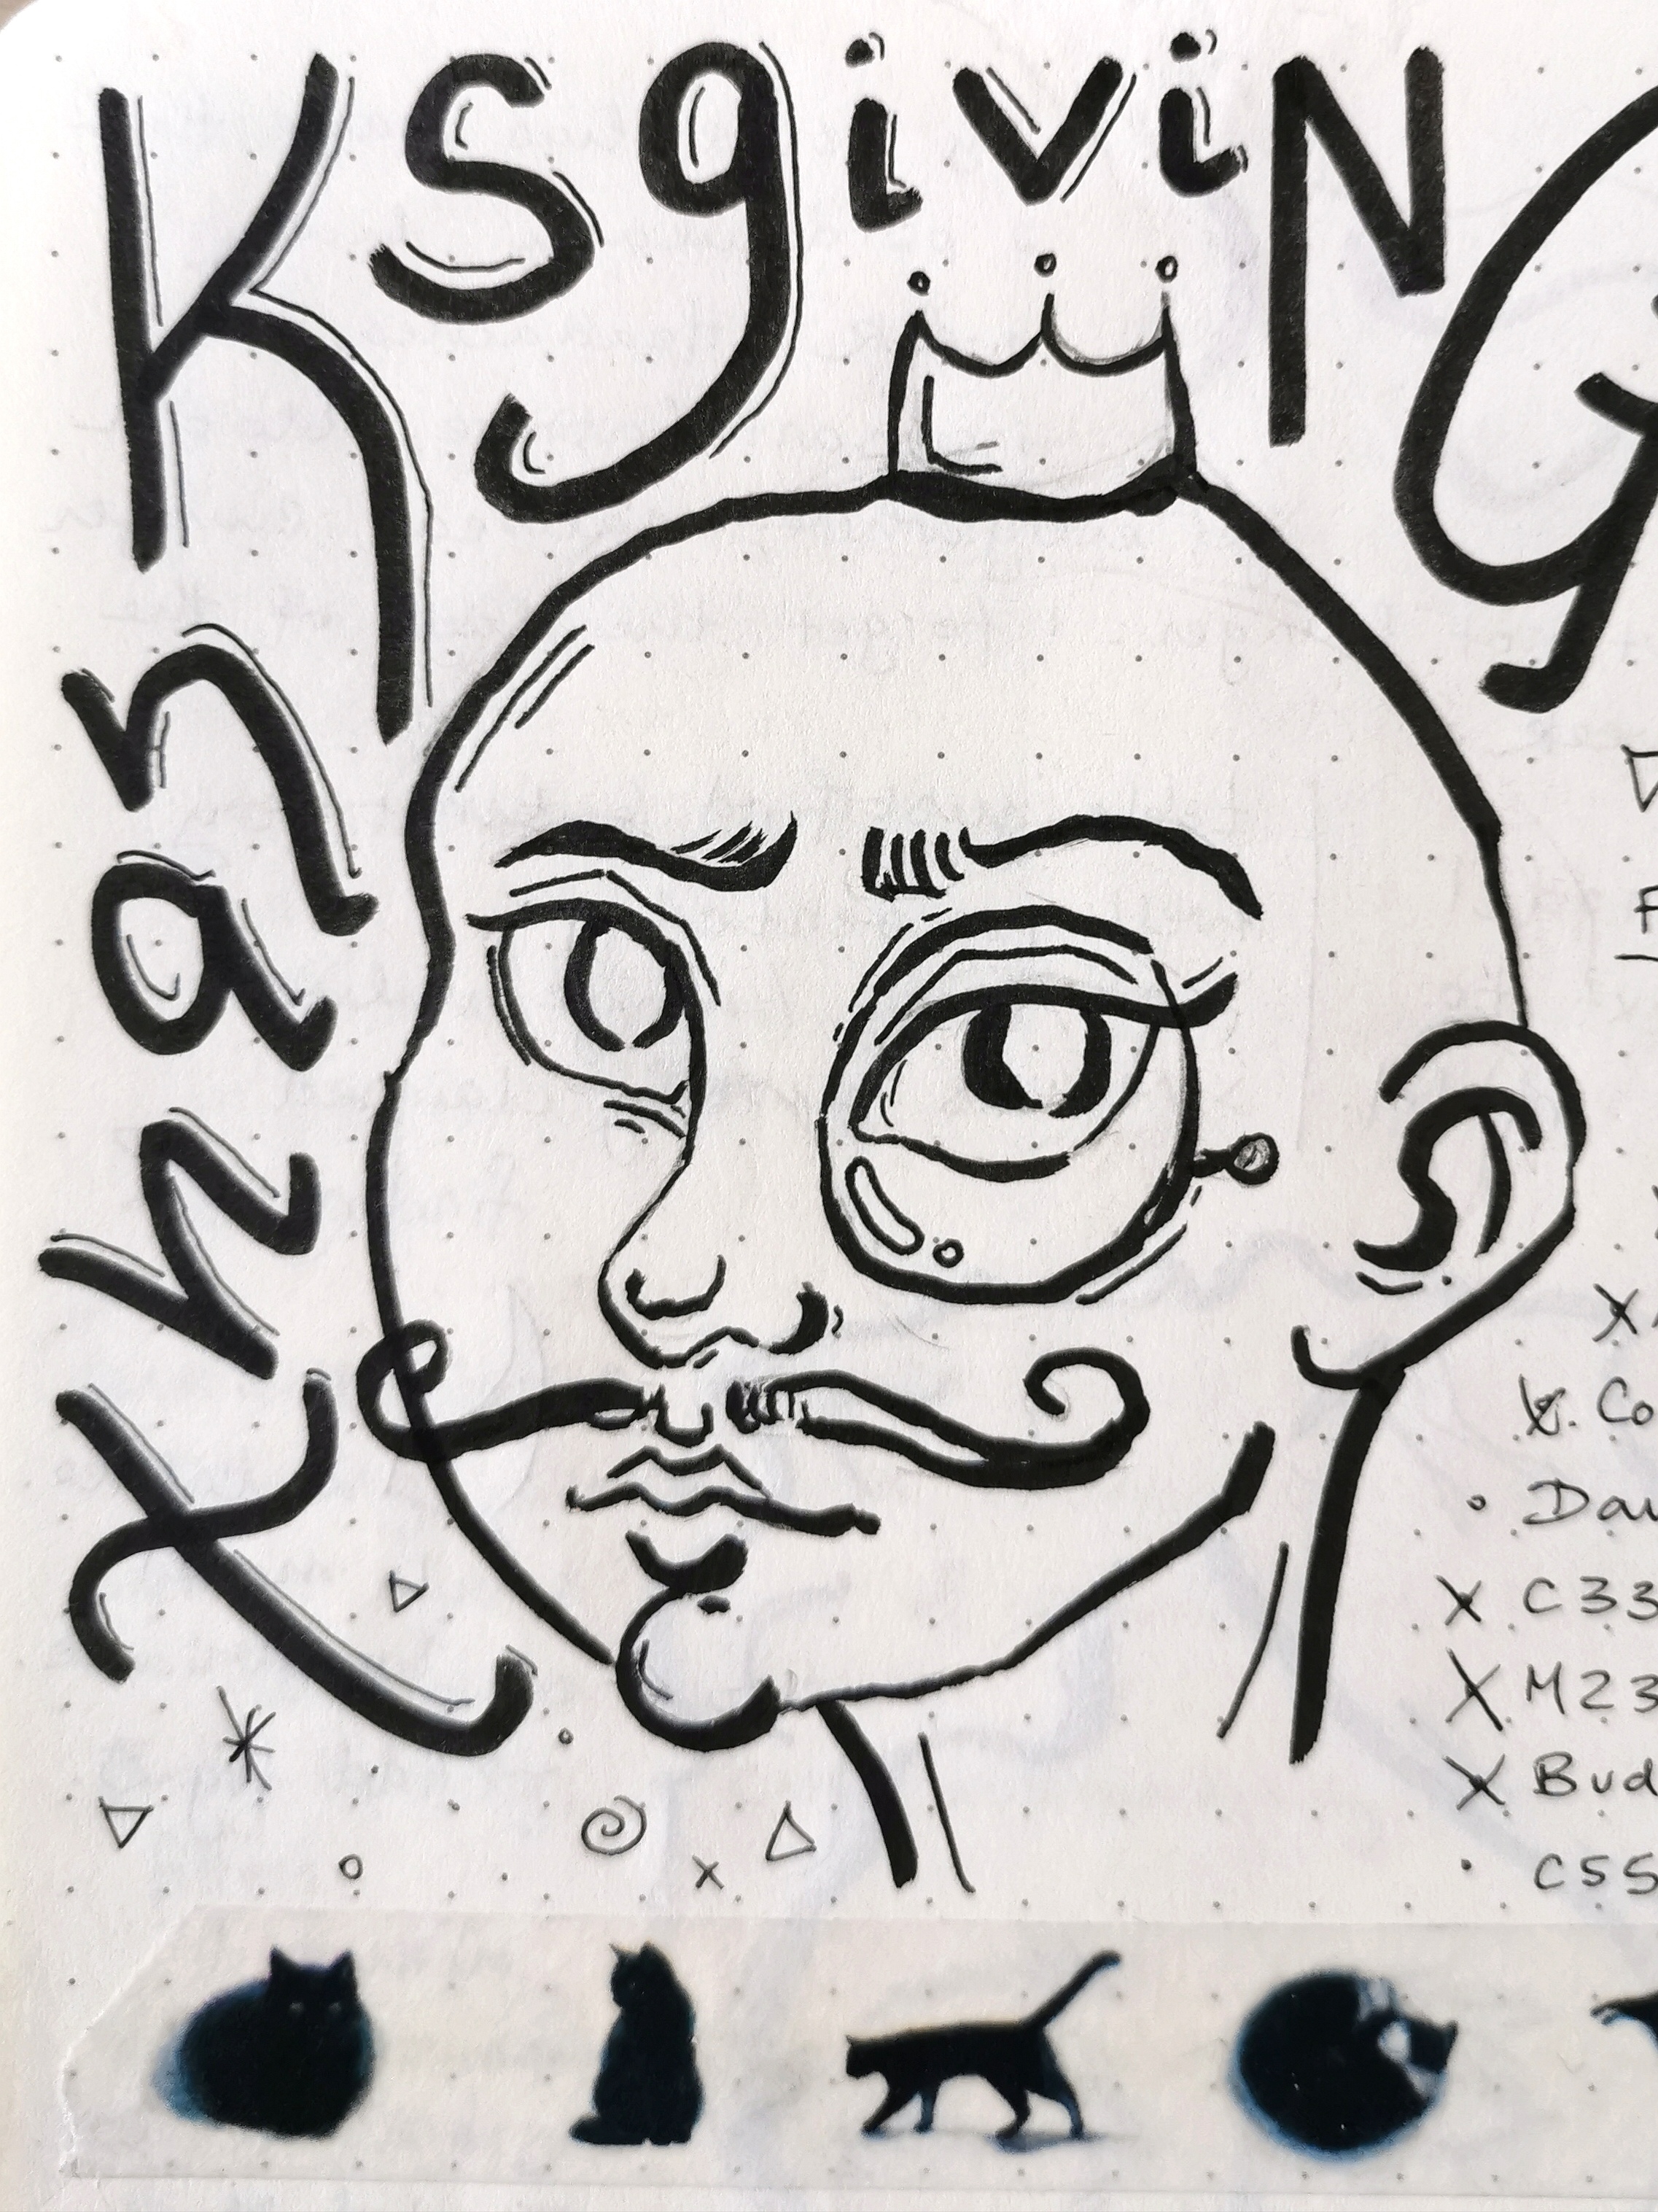 thanKsgiviNG
Co
Dau
C33
M23
Bud
C55